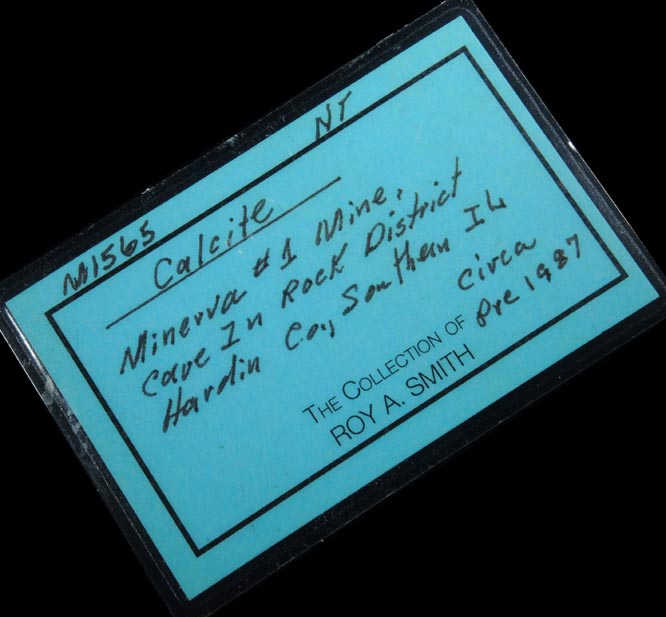 M1565 NT
Calcite
Minerva #1 Mine,
Cave In Rock District
Hardin Co., Southern IL
circa
pre 1987
THE COLLECTION OF
ROY A. SMITH